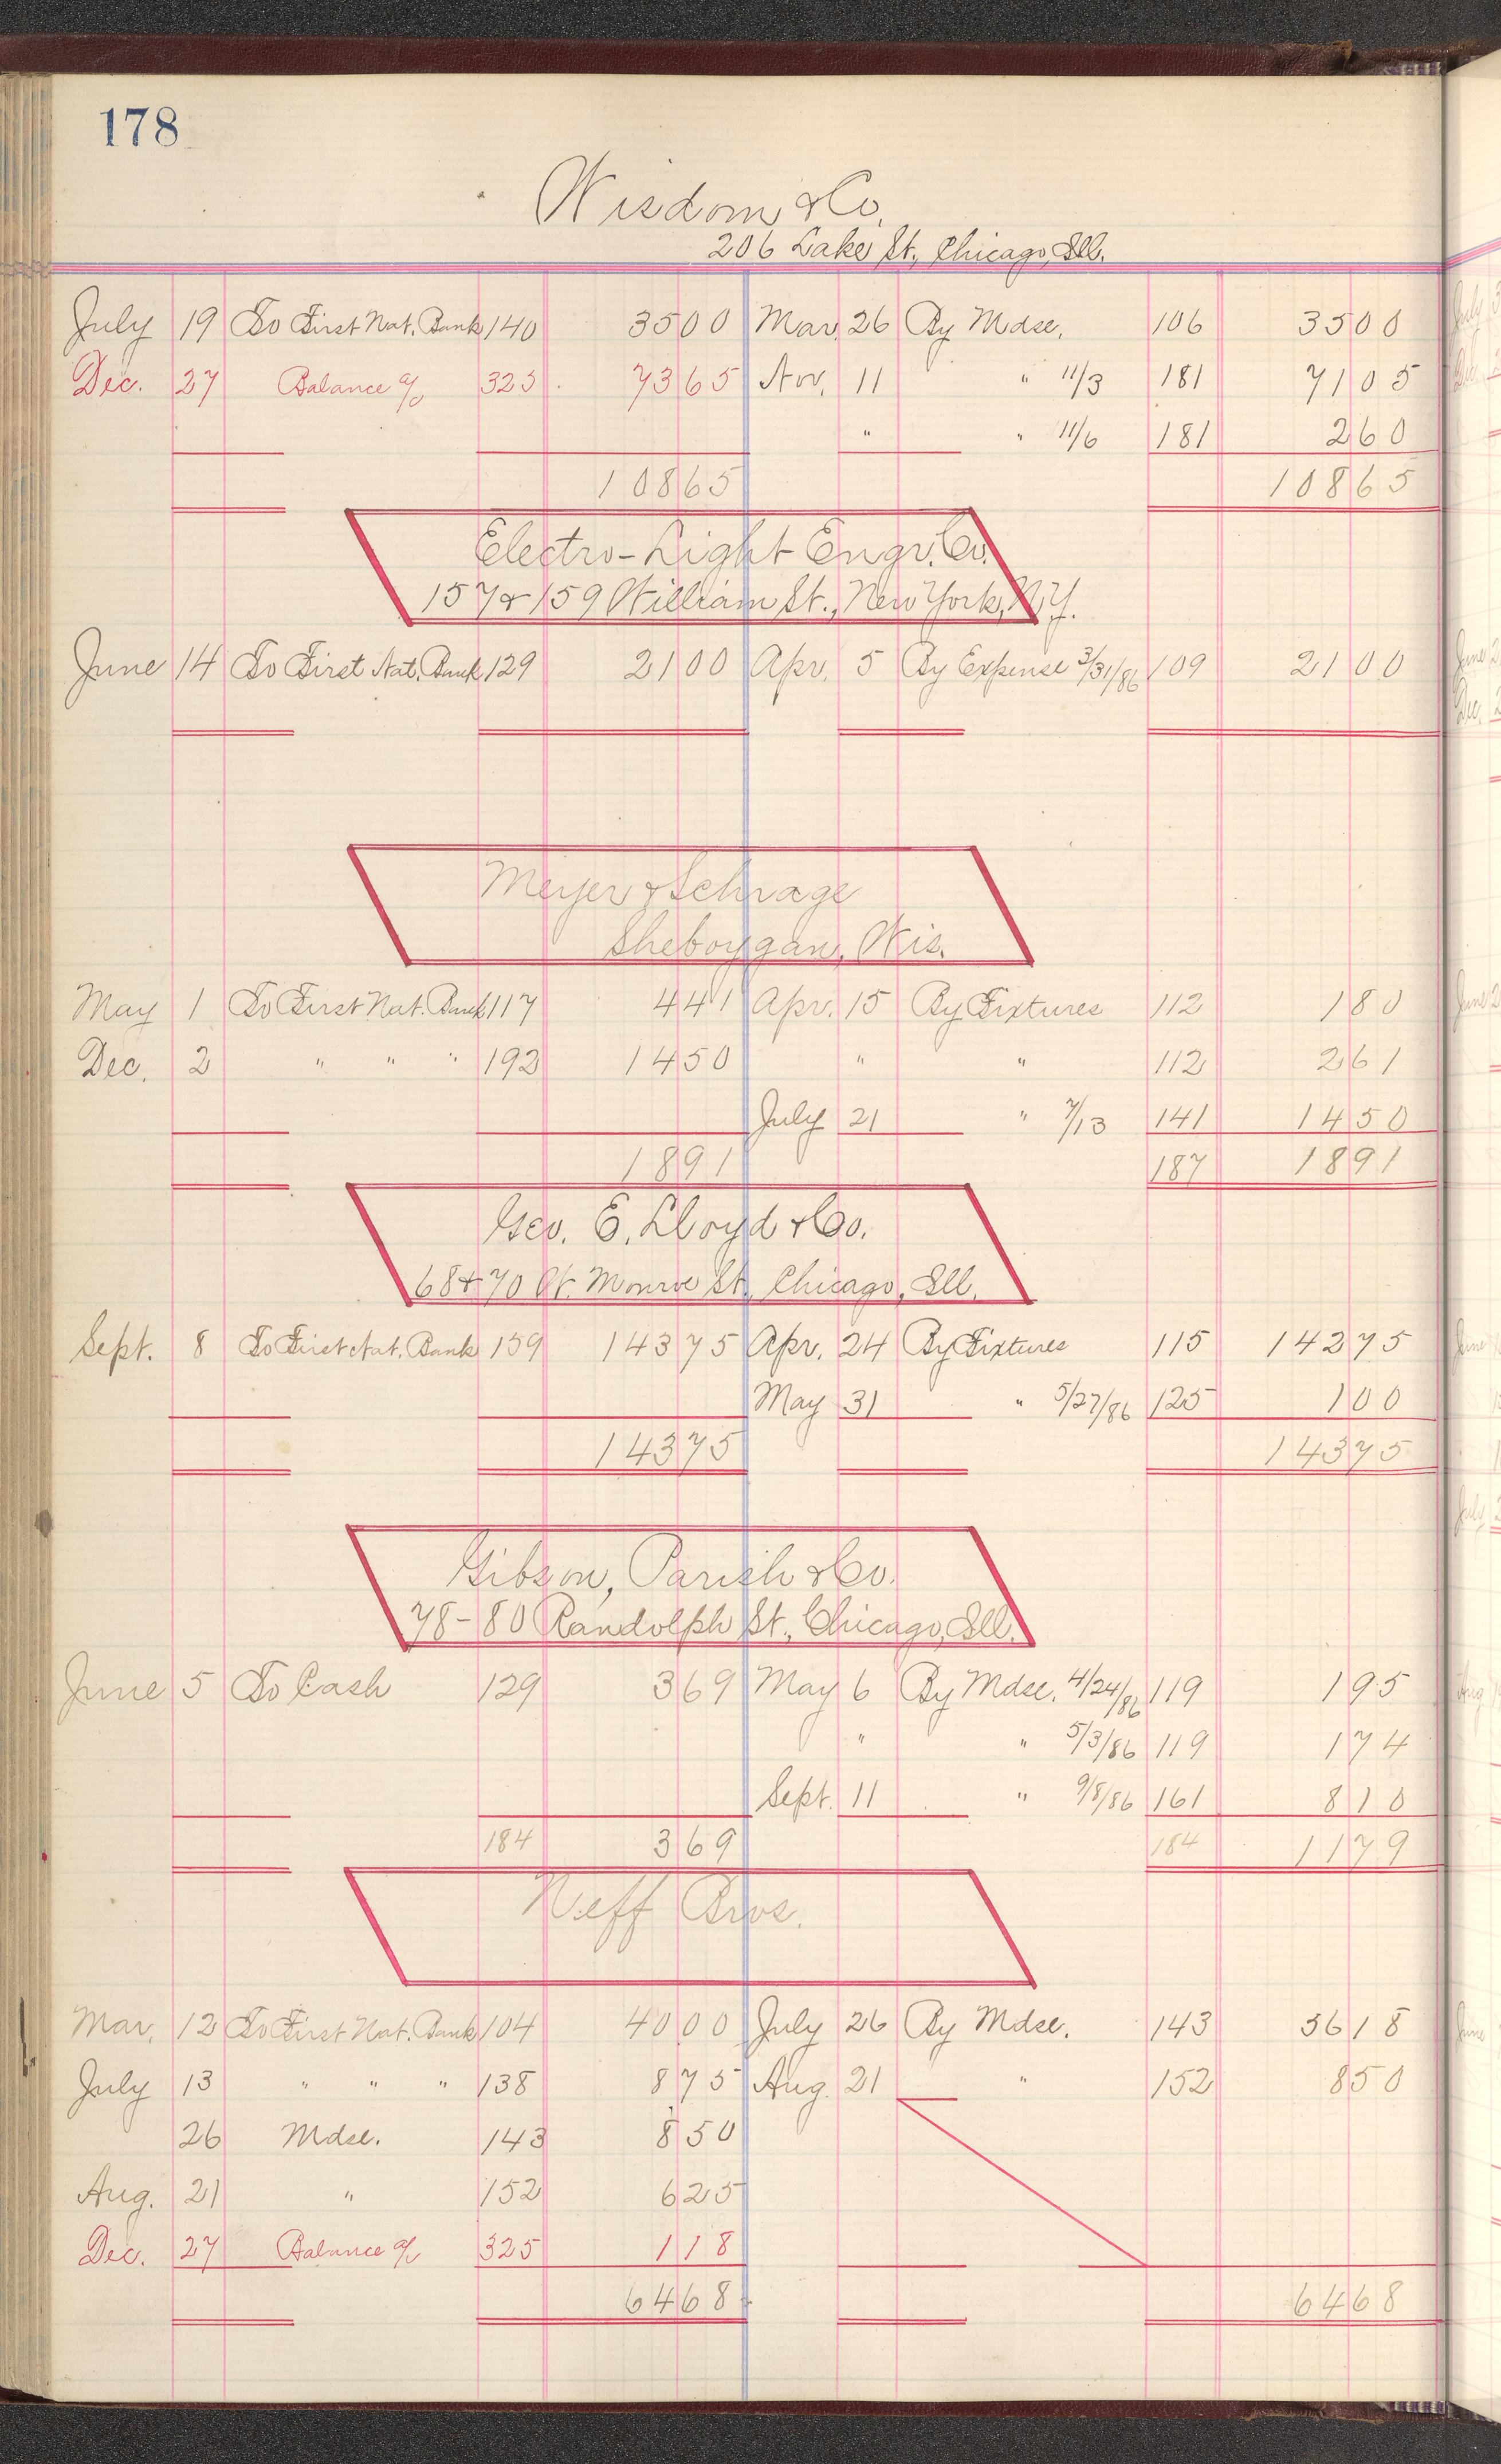 178
Wisdom & Co.
206 Lake St., Chicago, Ill.
July 19 To First Nat. Bank 140 3500 Mar. 26 By Mdse. 106 3500
Dec. 27 Balance a/c 325 7365 Nov. 11 " 11/3 181 7105
" " 11/6 181 260
10865 10865
Electro-Light Engr. Co.
157 & 159 William St., New York, N.Y.
June 14 To First Nat. Bank 129 2100 Apr. 5 By Expense 3/31/86 109 2100
Meyer & Schrage
Sheboygan, Wis.
May 1 To First Nat. Bank 117 441 Apr. 15 By Fixtures 112 180
Dec. 2 " " " 192 1450 " " 112 261
July 21 " 7/13 141 1450
1891 187 1891
Geo. E. Lloyd & Co.
68 & 70 W. Monroe St., Chicago, Ill.
Sept. 8 To First Nat. Bank 159 14375 Apr. 24 By Fixtures 115 14275
May 31 " 5/27/86 125 100
14375 14375
Gibson, Parish & Co.
78-80 Randolph St., Chicago, Ill.
June 5 To Cash 129 369 May 6 By Mdse. 4/24/86 119 195
" " 5/3/86 119 174
Sept. 11 " 9/8/86 161 810
184 369 184 1179
Neff Bros.
Mar. 12 To First Nat. Bank 104 4000 July 26 By Mdse. 143 5618
July 13 " " " 138 875 Aug. 21 " 152 850
26 Mdse. 143 850
Aug. 21 " 152 625
Dec. 27 Balance a/c 325 118
6468 6468